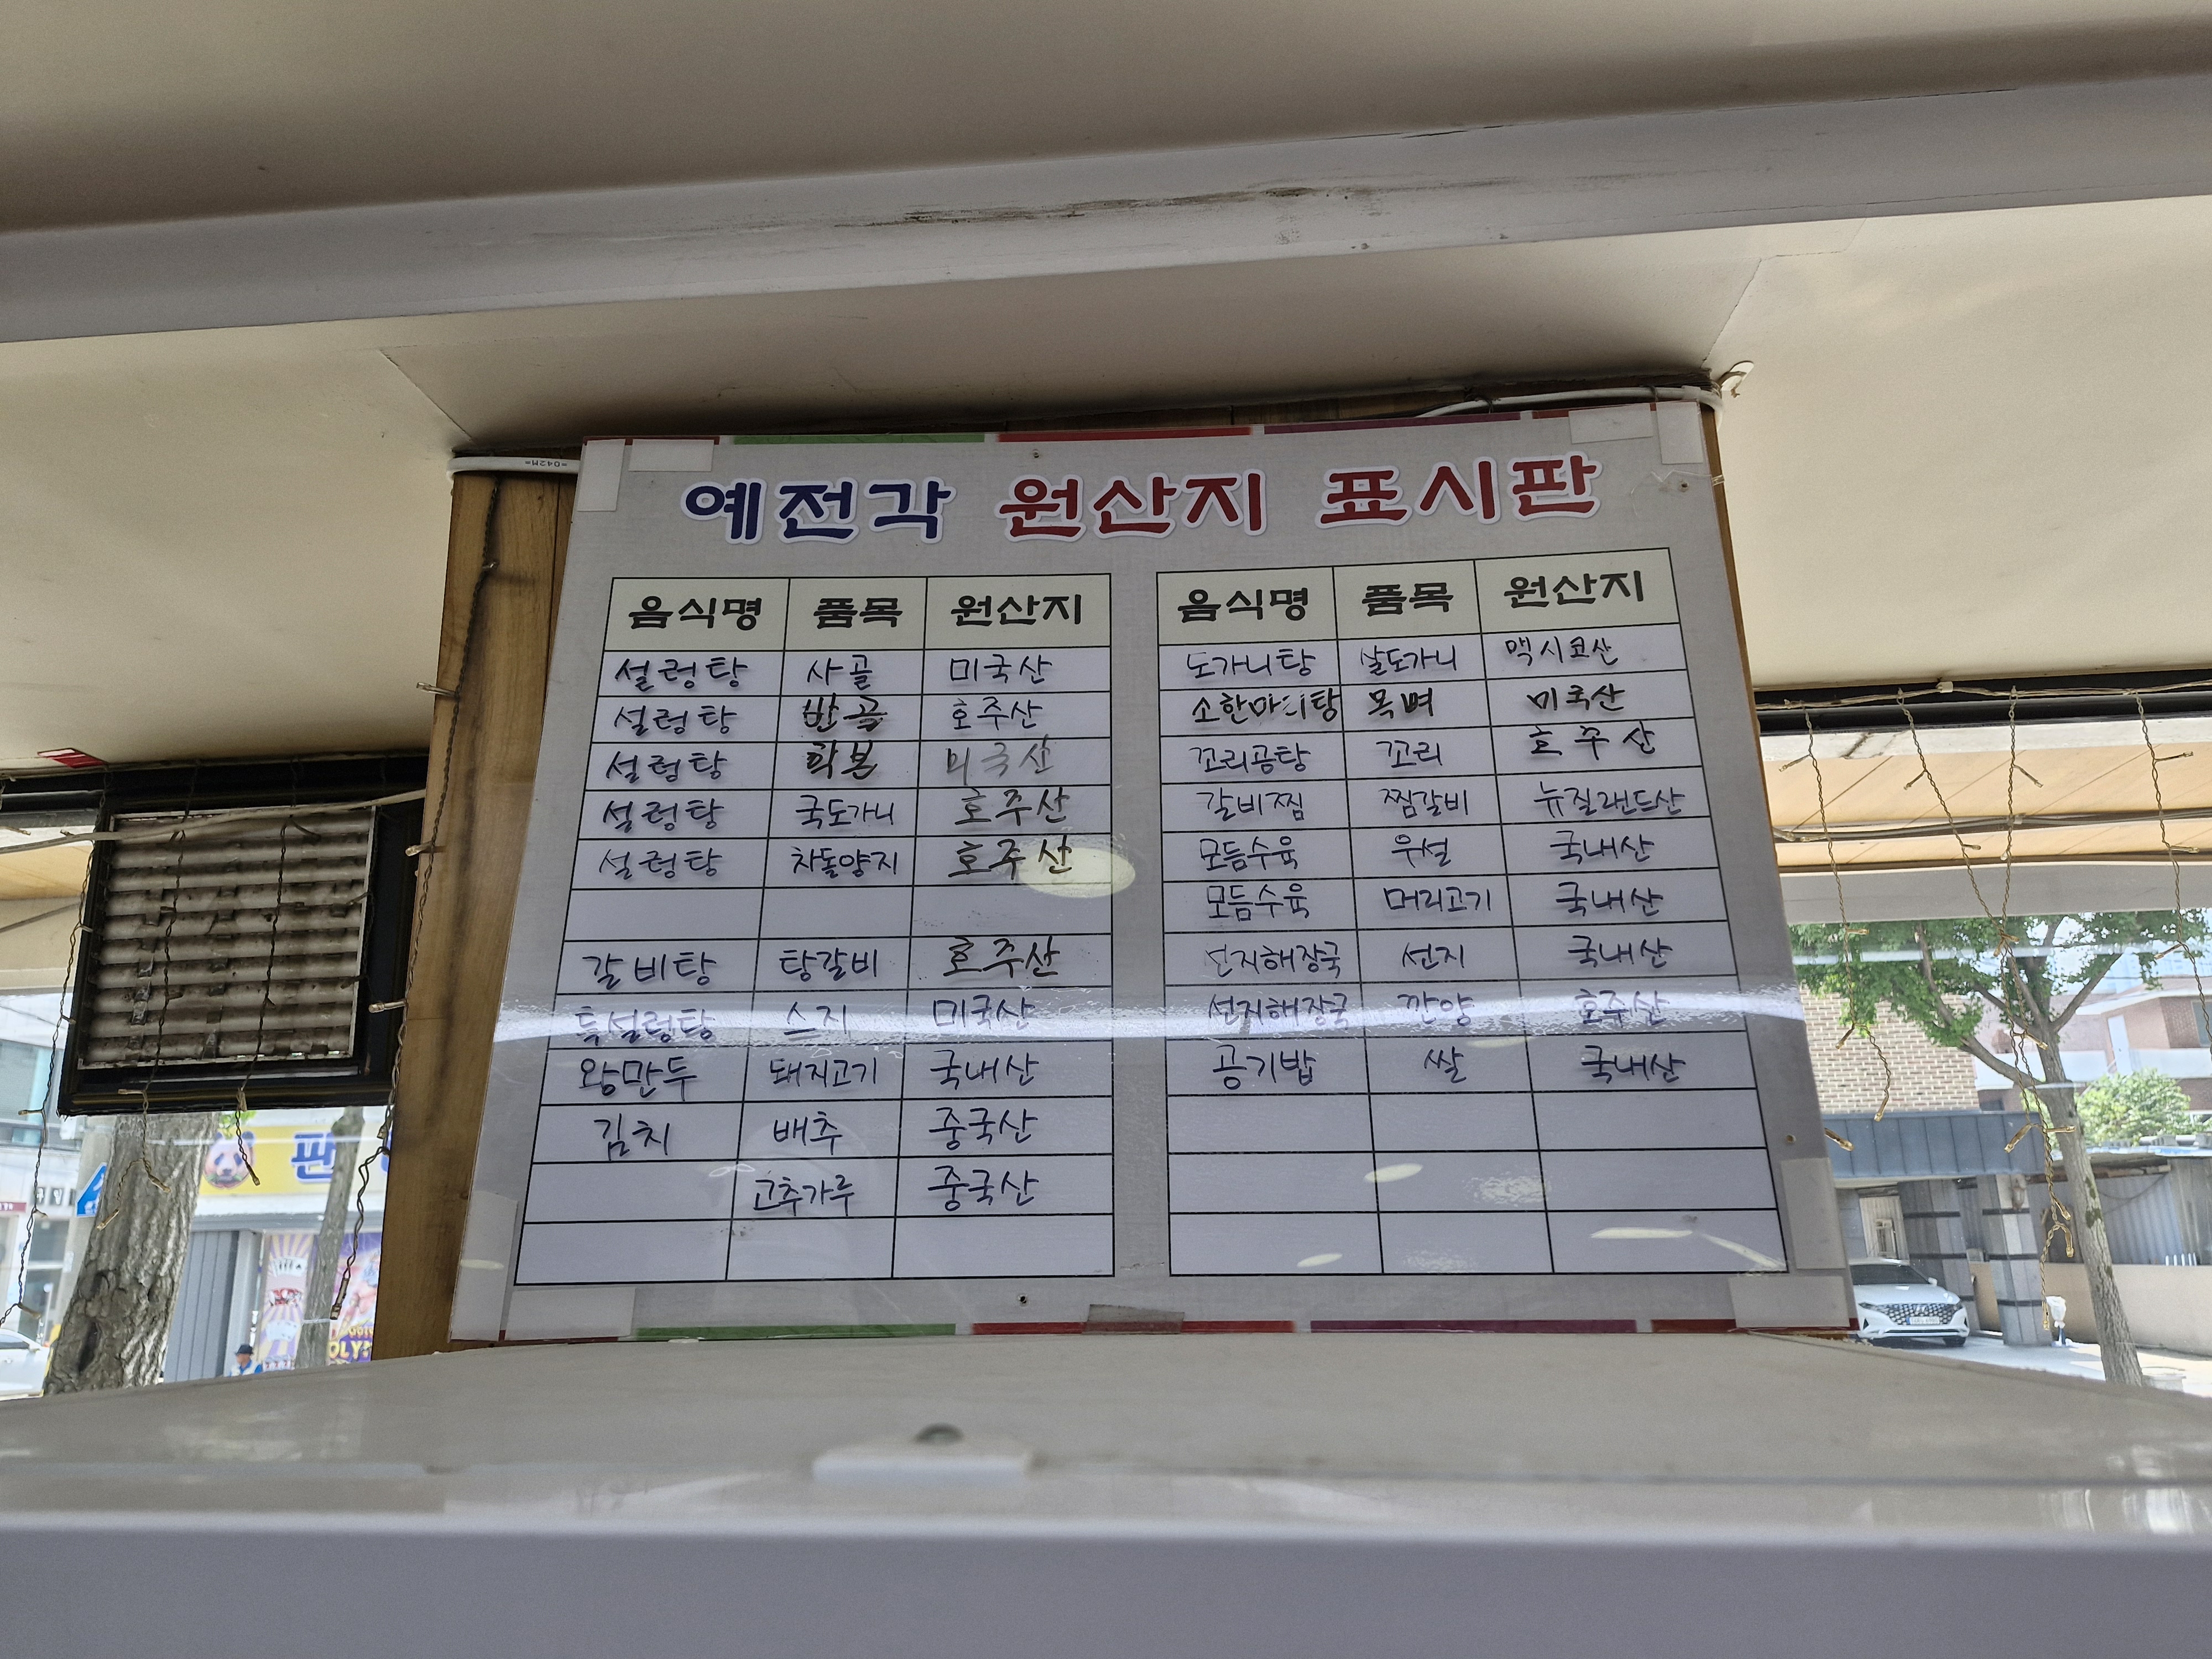 예전각 원산지 표시판
음식명 품목 원산지
설렁탕 사골 미국산
설렁탕 반골 호주산
설렁탕 학본 미국산
설렁탕 국도가니 호주산
설렁탕 차돌양지 호주산
갈비탕 탕갈비 호주산
특설렁탕 스지 미국산
왕만두 돼지고기 국내산
김치 배추 중국산
고추가루 중국산
음식명 품목 원산지
도가니탕 살도가니 맥시코산
소한마리탕 목뼈 미국산
꼬리곰탕 꼬리 호주산
갈비찜 찜갈비 뉴질랜드산
모듬수육 우설 국내산
모듬수육 머리고기 국내산
선지해장국 선지 국내산
선지해장국 깐양 호주산
공기밥 쌀 국내산
판